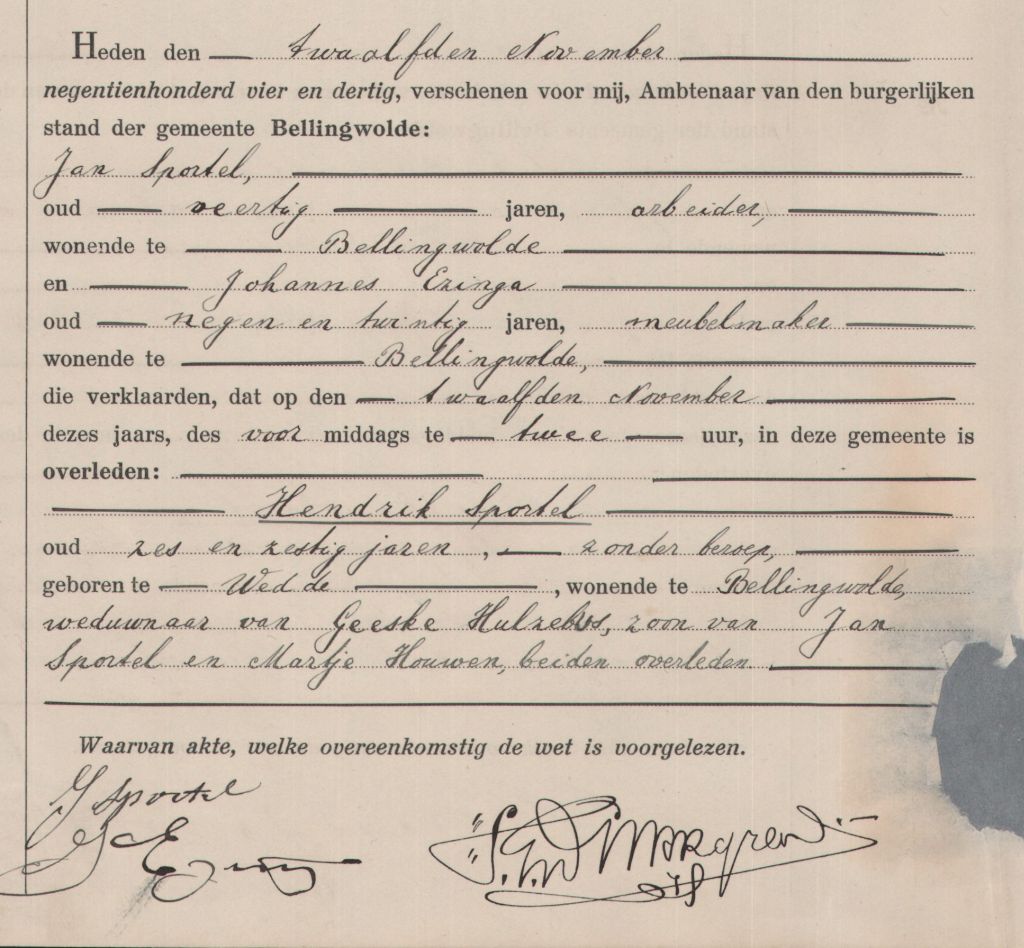 Heden den twaalfden November
negentienhonderd vier en dertig, verschenen voor mij, Ambtenaar van den burgerlijken
stand der gemeente Bellingwolde:
Jan Sportel,
oud veertig jaren, arbeider,
wonende te Bellingwolde
en Johannes Ezinga
oud negen en twintig jaren, meubelmaker
wonende te Bellingwolde,
die verklaarden, dat op den twaalfden November
dezes jaars, des voor middags te twee uur, in deze gemeente is
overleden:
Hendrik Sportel
oud zes en zestig jaren, zonder beroep,
geboren te Wedde, wonende te Bellingwolde,
weduwnaar van Geeske Hulzebos, zoon van Jan
Sportel en Martje Houwen, beiden overleden
Waarvan akte, welke overeenkomstig de wet is voorgelezen.
J Sportel
J Ezinga